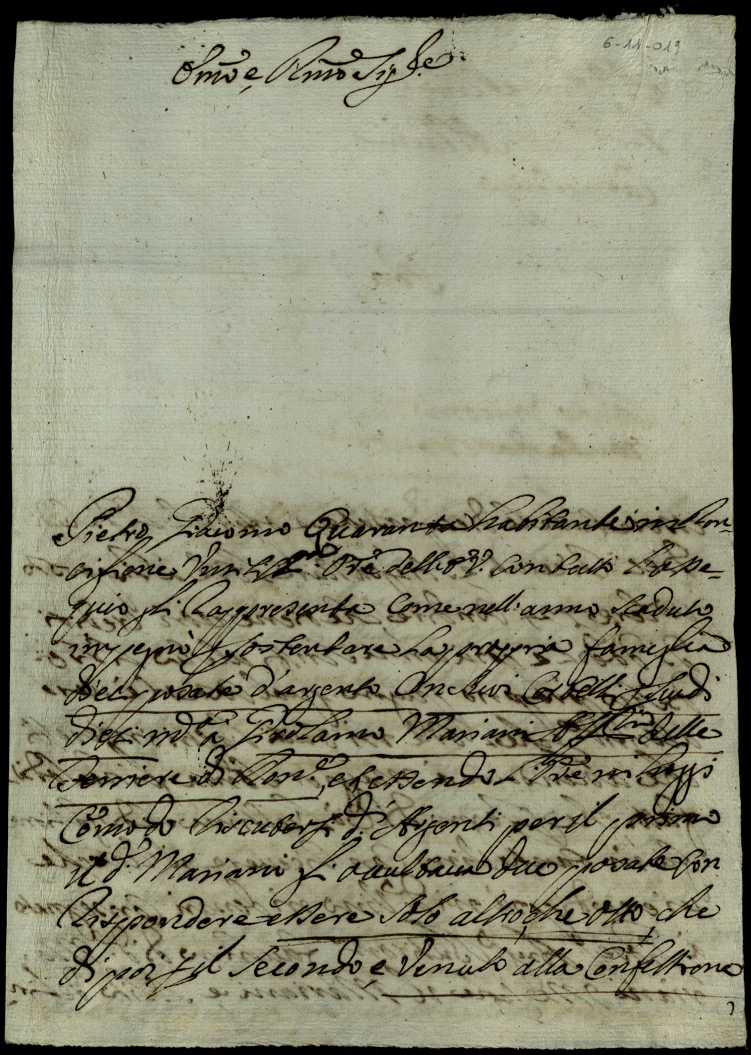 6-11-019
Em̃o e, Rmõ Sig.re
Pietro, Giacomo Quaranta habitante in Ron-
ciglione Um.o Ore dell'E. V. con tutto l'osse-
quio gli rappresenta come nell'anno scaduto
impegnò p sostentare la propria famiglia
dieci posate d'argento con suoi Cortelli p scudi
dieci m.ta a Girolamo Mariani delle
Ferriere di Ron.e, et essendo l'Ore in hoggi
Comodo riscuoter gl' d.i Argenti per il primo
il d.o Mariani gl' occultava due posate con
rispondere essere solo altro, che otto, che
di poi p il secondo, è venuto alla Confessione